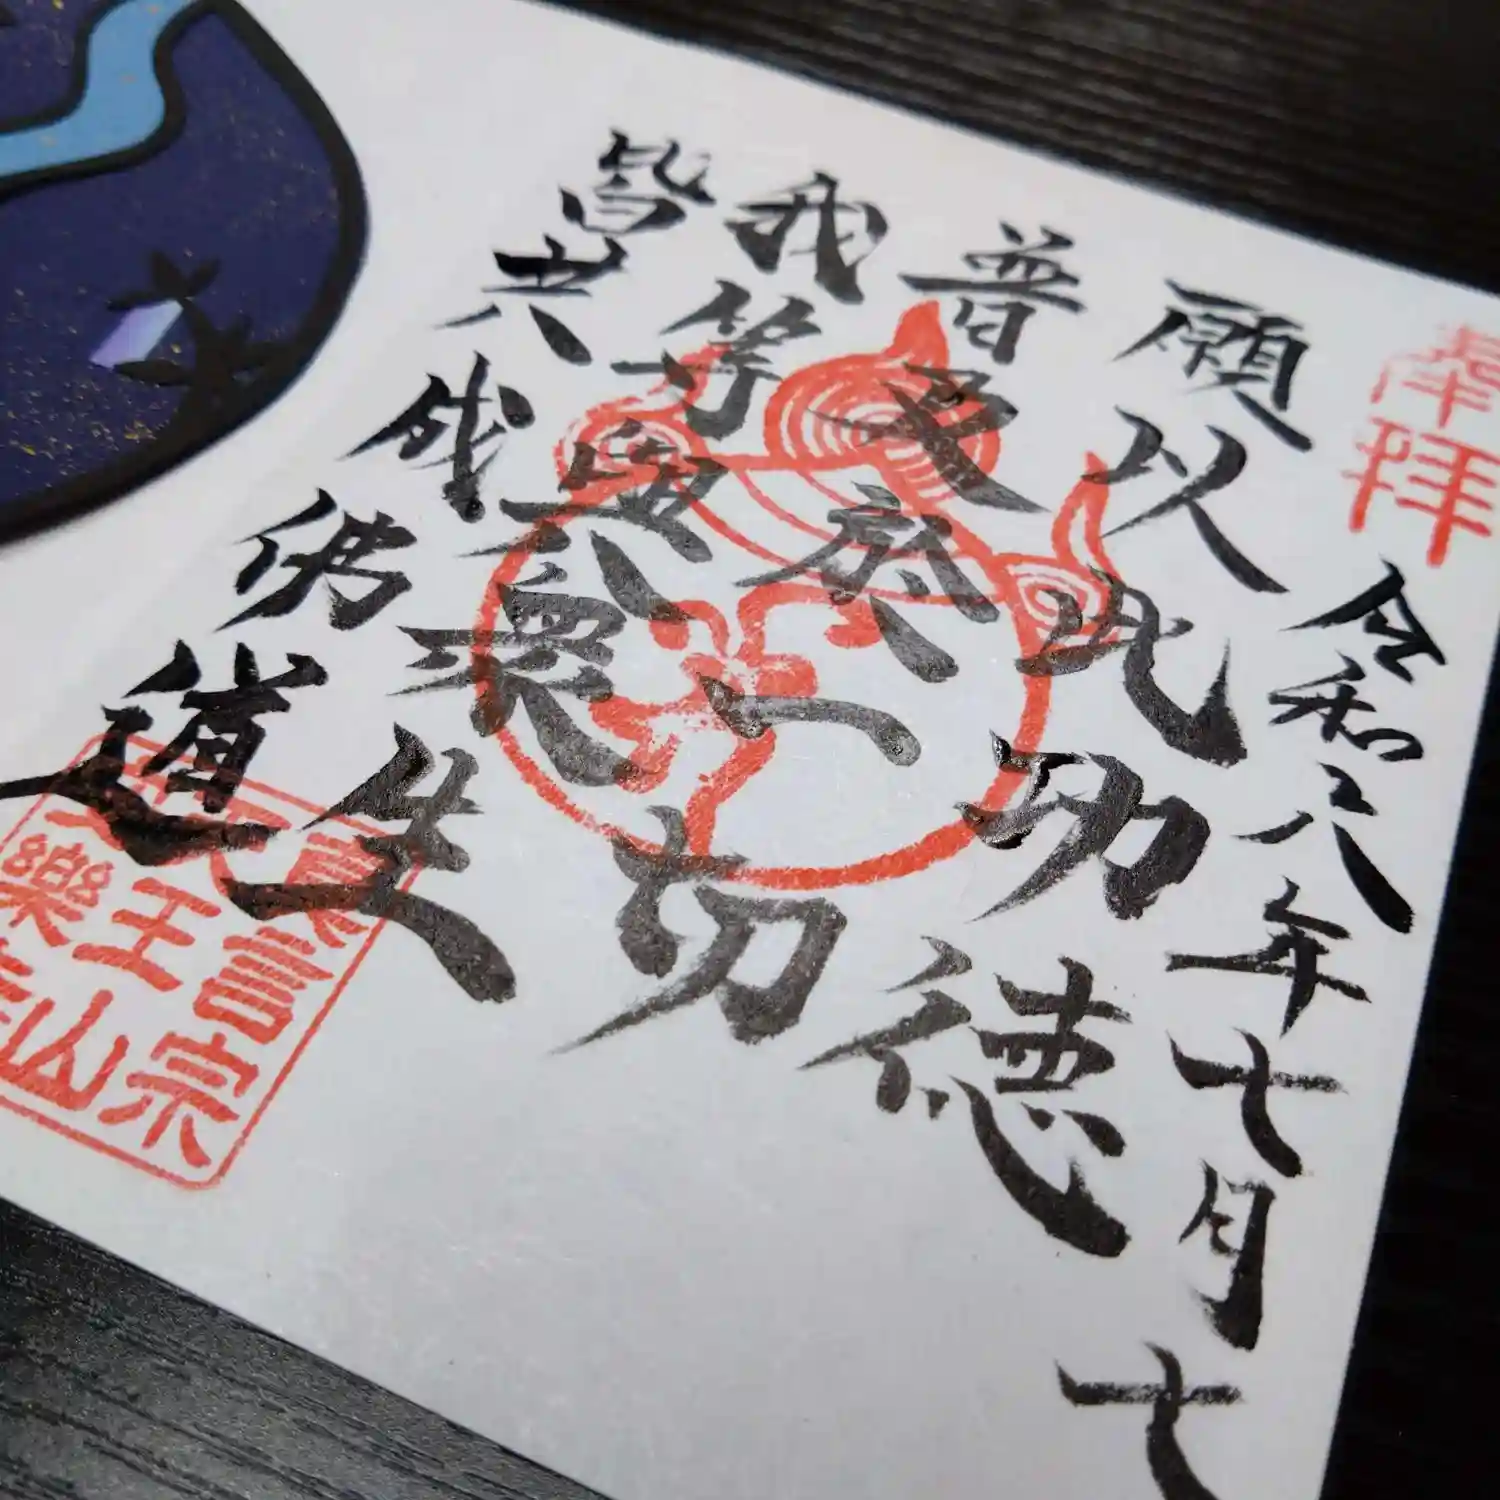 奉拝
令和八年七月七
願以此功徳
普及於一切
我等與衆生
皆共成佛道
真言宗
王山
樂